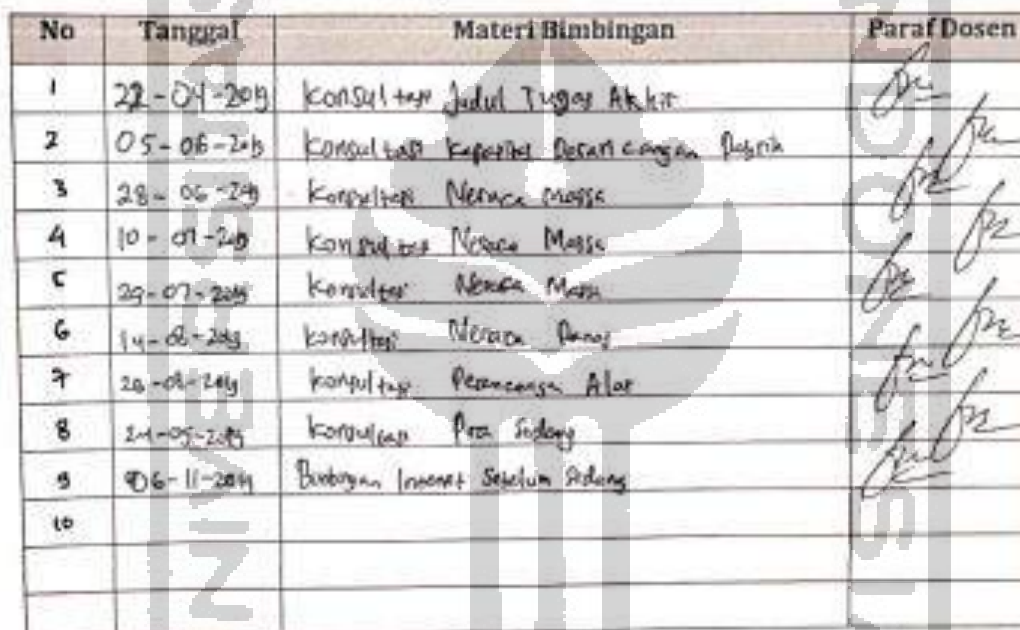 No Tanggal Materi Bimbingan Paraf Dosen
1 22-04-2019 Konsultasi Judul Tugas Akhir
2 05-06-2019 Konsultasi Kapasitas Perancangan Pabrik
3 28-06-2019 Konsultasi Neraca Massa
4 10-07-2019 Konsultasi Neraca Massa
5 29-07-2019 Konsultasi Neraca Massa
6 14-08-2019 Konsultasi Neraca Panas
7 Konsultasi Perancangan Alat
8 Konsultasi Pra Sidang
9 06-11-2019 Bimbingan Sebelum Sidang
10